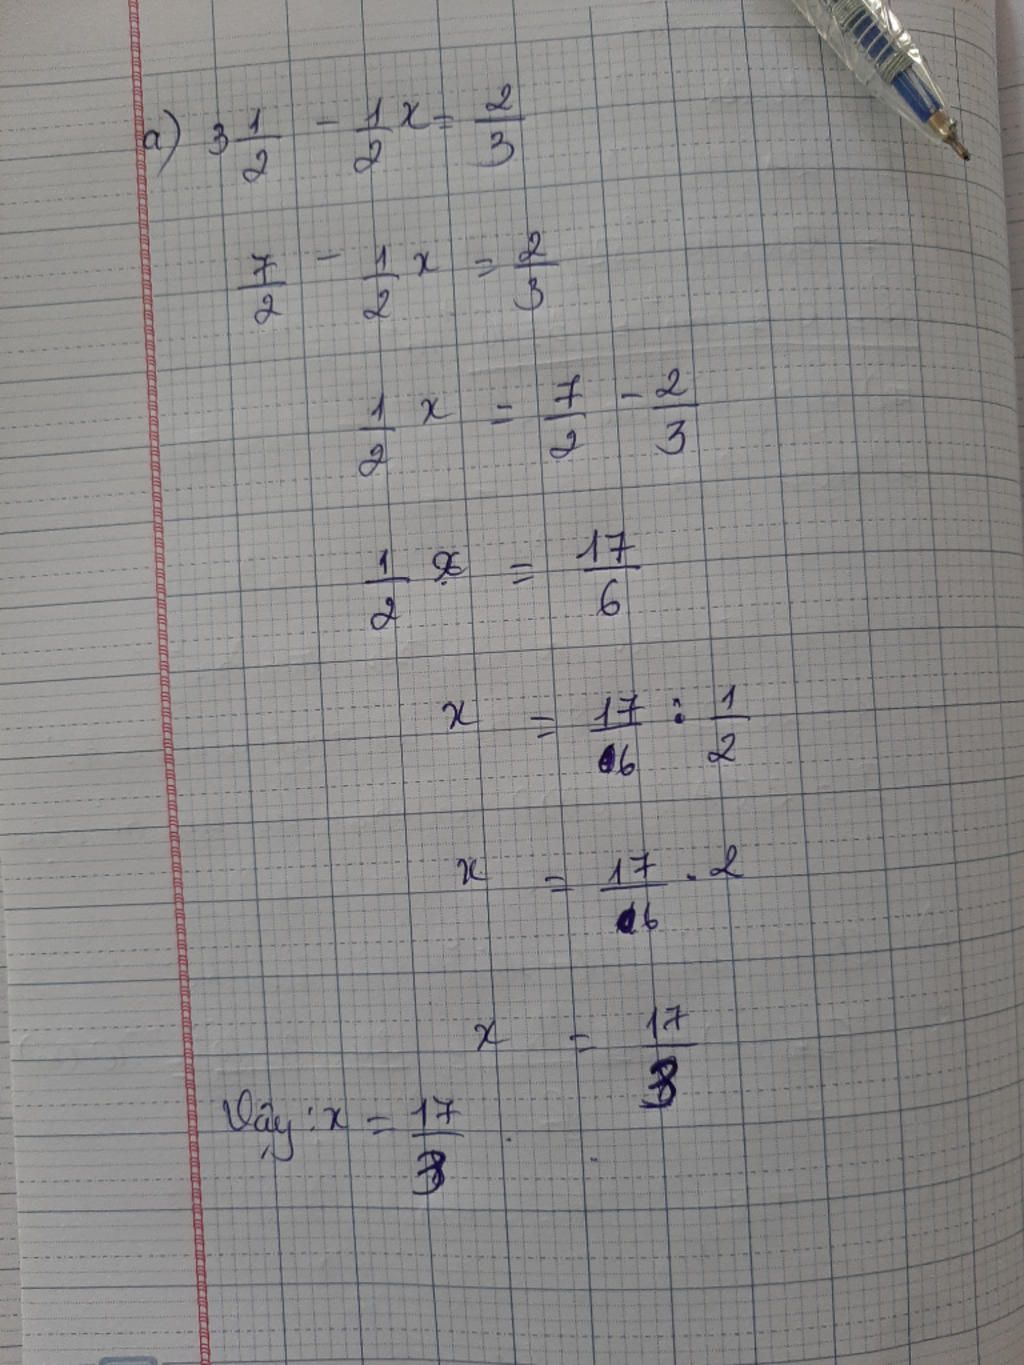 a) 3 1/2 - 1/2 x = 2/3
7/2 - 1/2 x = 2/3
1/2 x = 7/2 - 2/3
1/2 x = 17/6
x = 17/6 : 1/2
x = 17/6 . 2
x = 17/3
Vậy : x = 17/3